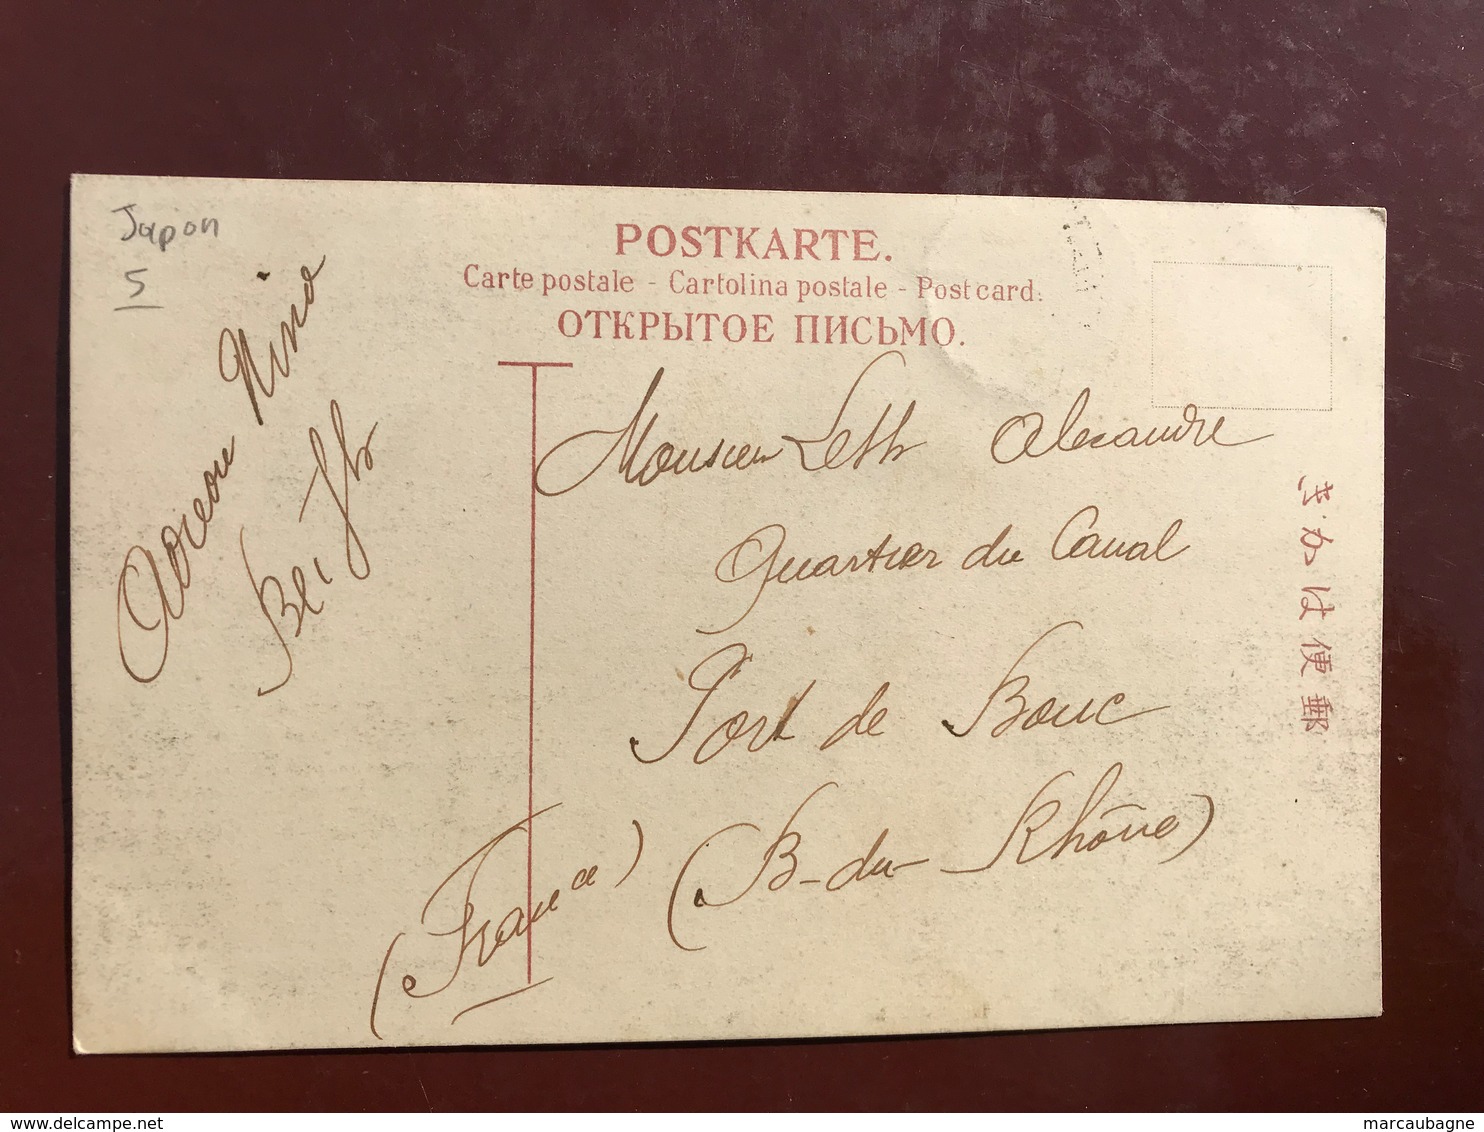 Japon
5
POSTKARTE.
Carte postale - Cartolina postale - Post card.
ОТКРЫТОЕ ПИСЬМО.
Nina
Monsieur Alexandre
Quartier du Canal
Port de Bouc
(B-du-Rhône)
(France)
郵便はかき
delcampe.net
marcaubagne